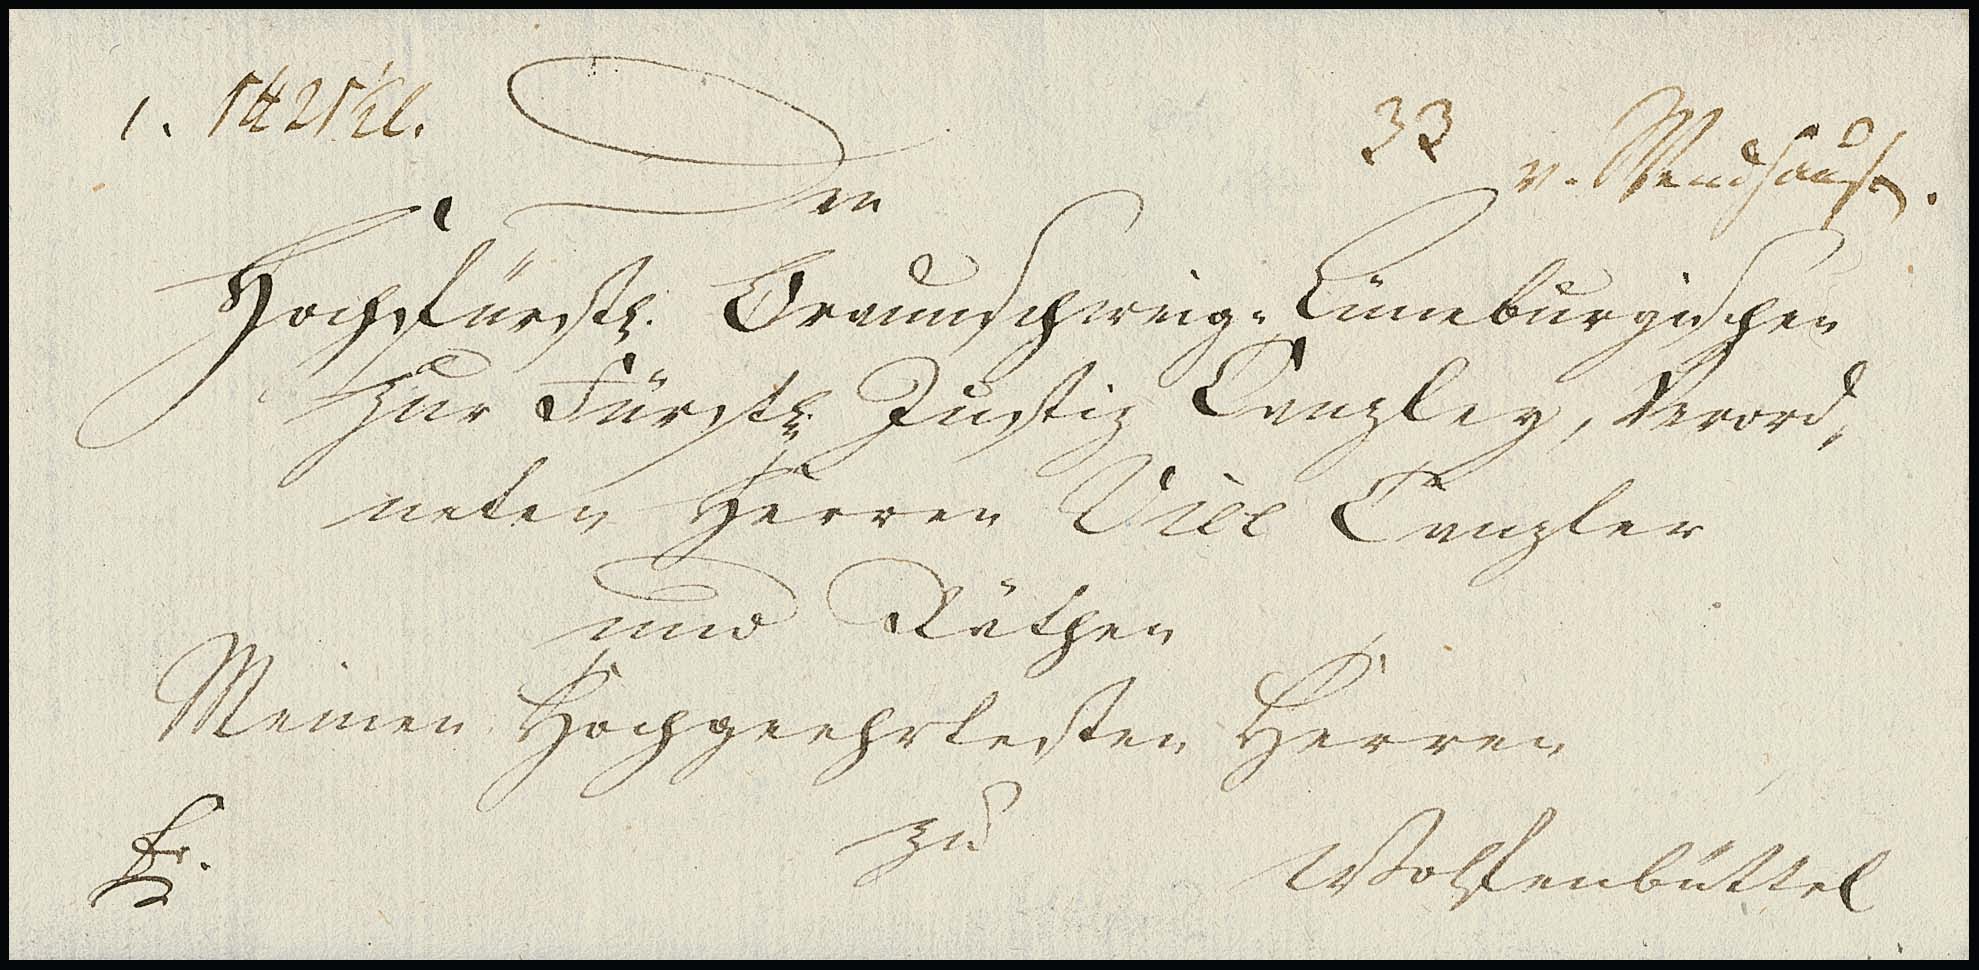 33
Den
Hochfürstl. Braunschweig-Lüneburgischen
Zur Fürstl. Justiz Canzley, Verord,
neten Herren Vice Canzler
und Räthen
Meinen Hochgeehrtesten Herren
zu
fr.
Wolfenbüttel